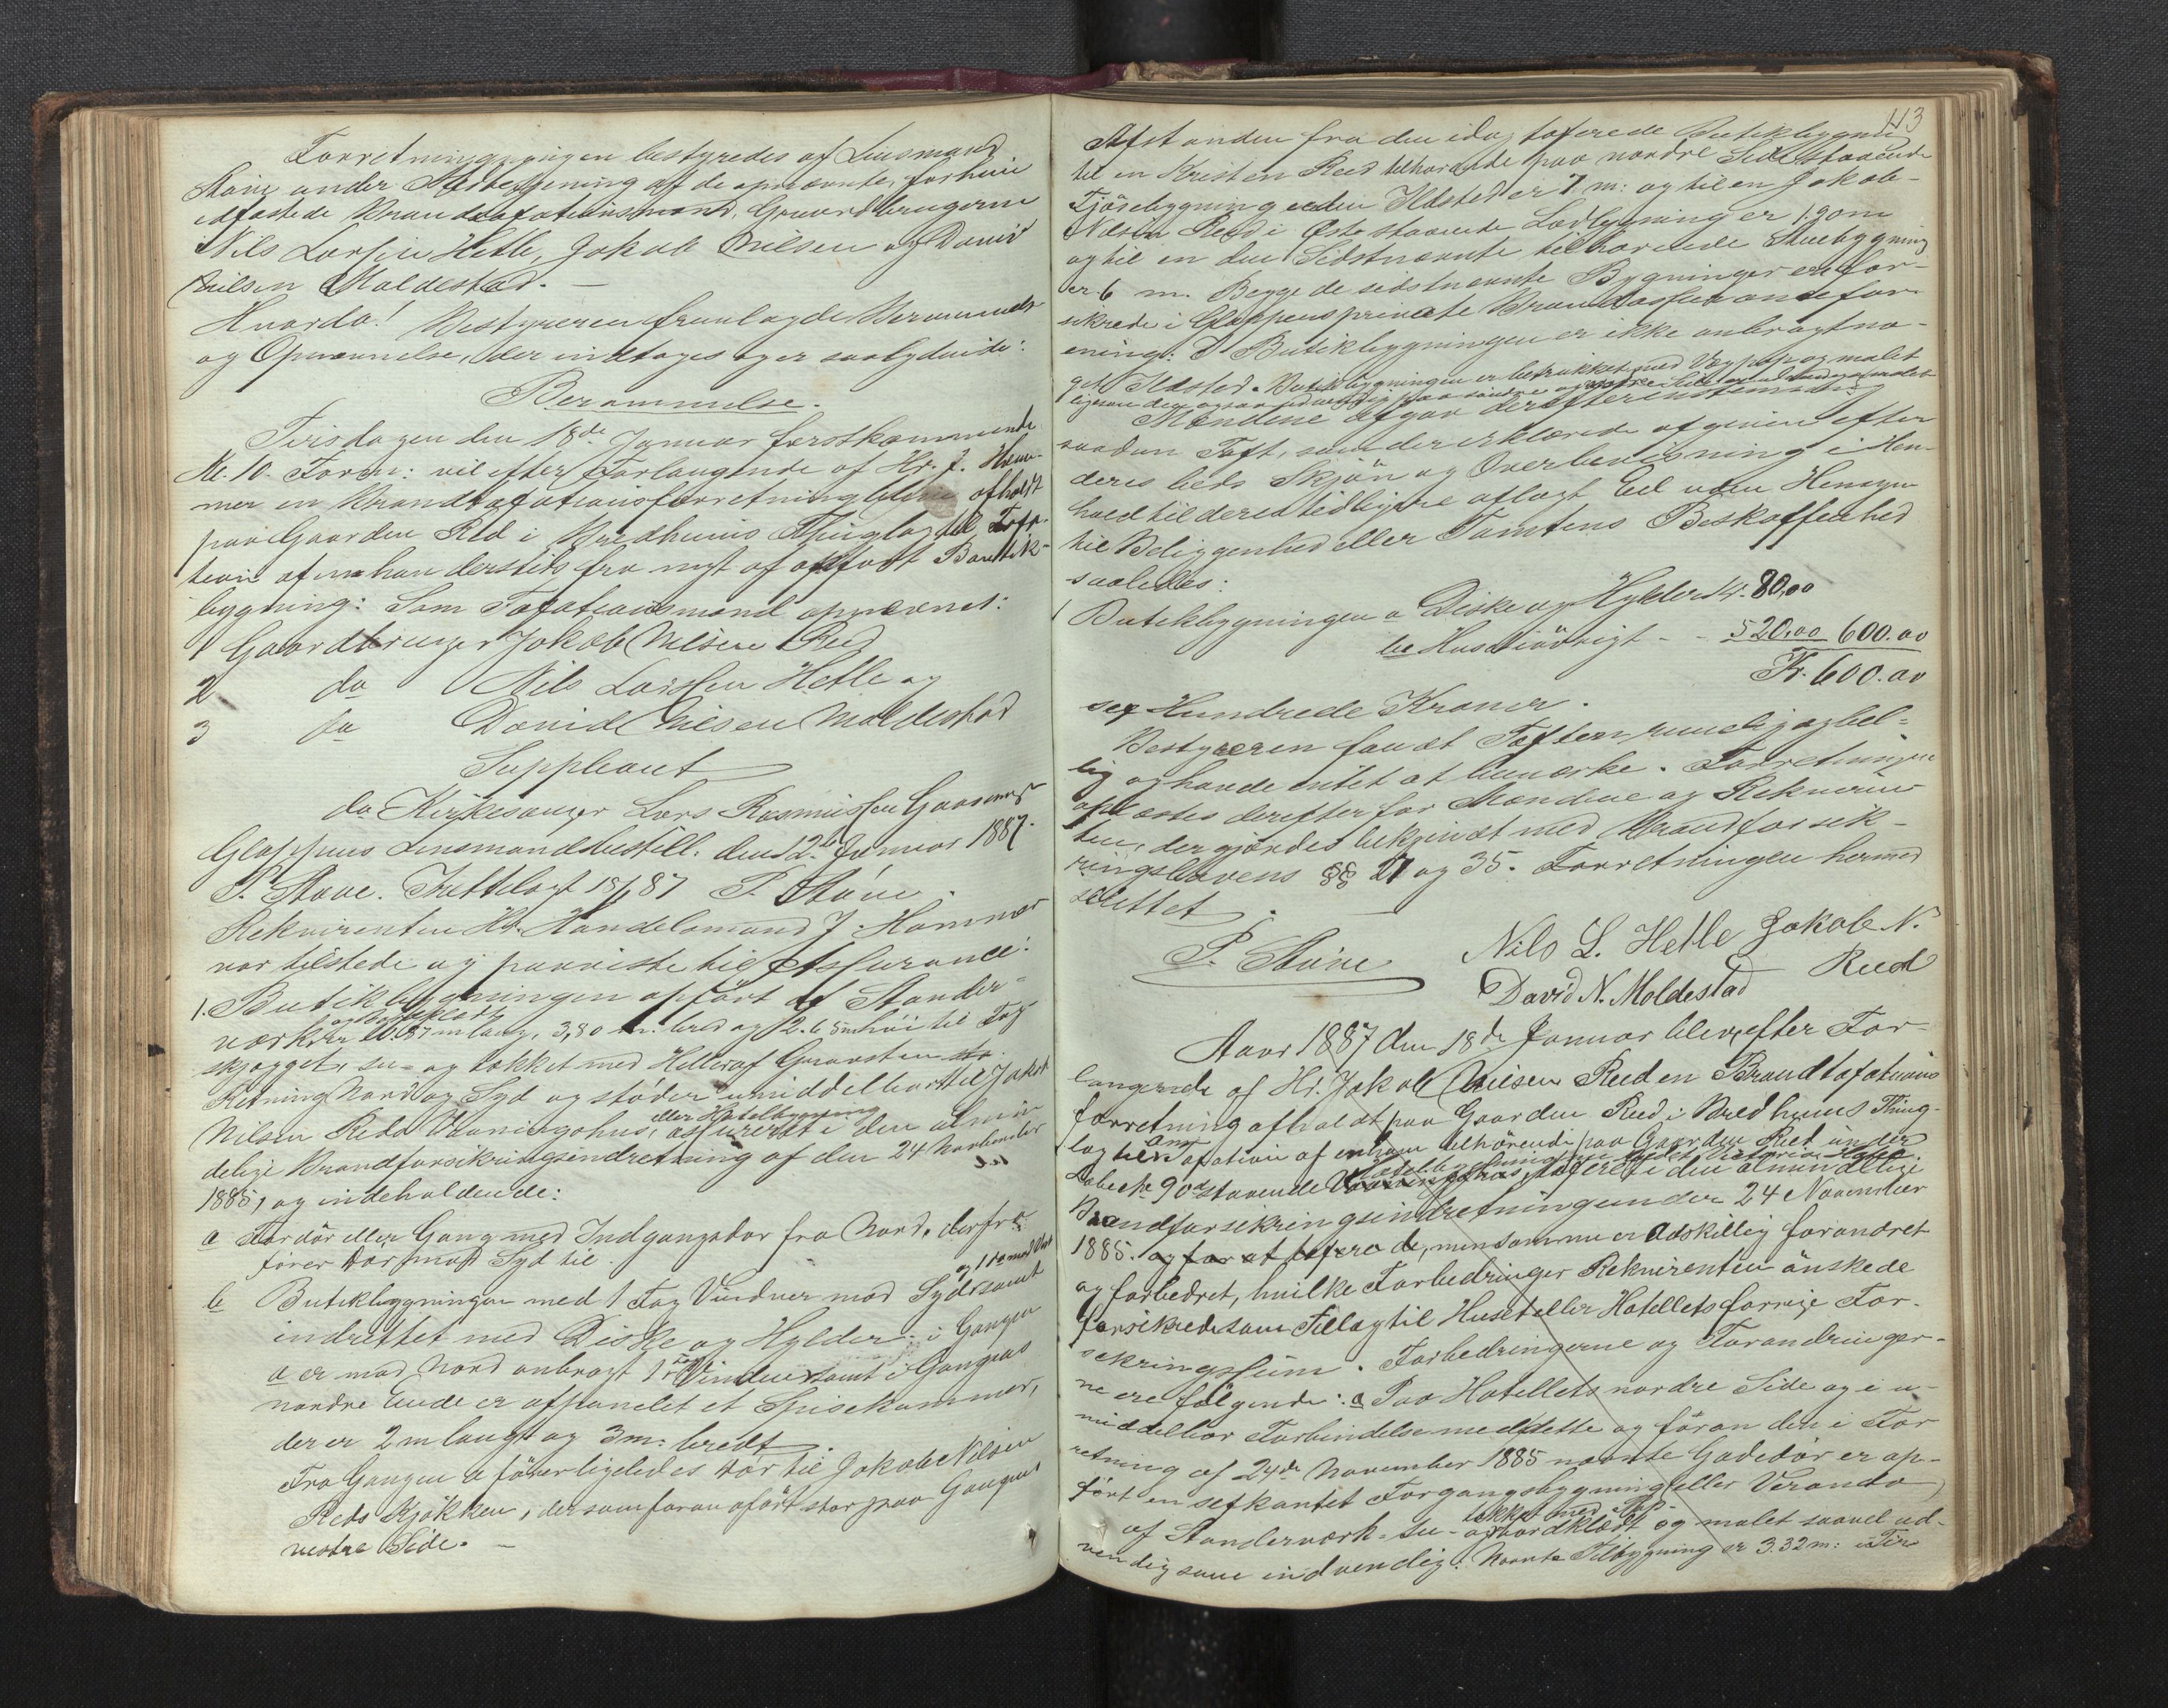 Forretningen bestyredes af Lensmand
Støve under Medbetjening af de opnævnte, forhen
edfæstede Brandtaxationsmænd, Gaardbrugerne
Nils Larsen Hetle, Jakob Nilsen og David
Nilsen Moldestad. —
Hvorda! Bestyreren fremlagde Berammelse
og Opnævnelse, der indtages og er saalydende:
Berammelse.
Tirsdagen den 18de Januar førstkommende
Kl. 10. Form: vil efter Forlangende af Hr. J. Ham-
mer en Brandtaxationsforretning blive afholdt
paa Gaarden Red i Bredheims Thinglag til Taxa-
tion af en ham dersteds fra nyt af opført Boutik-
bygning: Som Taxationsmænd opnævnes:
1 Gaardbruger Jakob Nilsen Red
2 do Nils Larsen Hetle og
3 do David Nilsen Moldestad
Suppleant
do Kirkesanger Lars Rasmussen Gaasemyr
Gloppens Lensmandsbestill. den 12te Januar 1887.
P. Støve. Fremlagt 18/1 87 P. Støve.
Rekvirenten Hr. Handelsmand J. Hammer
var tilstede og paaviste til Assurance:
1. Butikbygningen opført af Stander-
og bordklædt
værk er 10.87 m lang, 3,80 m. bred og 2.65 m høi til Tag
skjægget, su- og tækket med Heller af Graasten
Retning Nord og Syd og støder umiddelbart til Jakob
eller Hotelbygning
Nilsen Reds Vaaningshus, assureret i den almin
delige Brandforsikringsindretning af den 24 November
1885, og indeholdende:
a Fordør eller Gang med Indgangsdør fra Nord, derfra
fører Dør mod Syd til
og 1 do mod Vest
b Butikbygningen med 1 Fag Vinduer mod Syd samt
indrettet med Diske og Hylder; i Gangen
a er mod Nord anbragt 1 Fag Vinduer samt i Gangens
nordre Ende er afpanelet et Spisekammer,
der er 2 m langt og 3 m: bredt.
Fra Gangen a fører ligeledes Dør til Jakob Nilsen
Reds Kjøkken, der som foran anført staar paa Gangens
vestre Side. —
113
Afstanden fra den idag taxerede Butikbygning
til en Kristen Reed tilhørende paa nordre Side staaende
Fjøsbygning uden Ildsted er 7 m: og til en Jakob
Nilsen Reed i Øst staaende Ladbygning er 1.90 m
og til en den Sidstnævnte tilhørende Stuebygning
er 6 m. Begge de sidstnævnte Bygninger ere for-
sikrede i Gloppens private Brandassuranceforening
ening: I Butikbygningen er ikke anbragt no-
get Ildsted. Butikbygningen er betrukket med Vægpap og malet
ligesom den ogsaa udvendig paa søndre og vestre Side er malet
Mændene afgav derefter eenstemmig
saadan Taxt, som der erklærede afgiven efter
deres beds Skjøn og Overbevisning i Hen-
hold til deres tidligere aflagt Eed uden Hensyn
til Beliggenhed eller Tomtens Beskaffenhed
saaledes:
1 Butikbygningen a Diske og Hylder Kr. 80,00
b Huset iøvrigt - - 520,00 600.00
Kr. 600.00
sex Hundrede Kroner.
Bestyreren fandt Taxten rimelig og bil-
lig og havde intet at bemærke. Forretningen
oplæstes derefter for Mændene og Rekviren
ten, der gjordes bekjendt med Brandforsik-
ringslovens §§ 21 og 35. Forretningen hermed
sluttet.
P. Støve Nils L. Hetle Jakob N.
David N. Moldestad Reed
Aar 1887 den 18de Januar blev, efter For-
langende af Hr. Jakob Nilsen Reed en Brandtaxations
forretning afholdt paa Gaarden Red i Bredheims Thing-
lag til Omtaxation af en ham tilhørende paa Gaarden Red under
Løbe No 90a staaende Vaaningshus, taxeret i den almindelige
Brandforsikringsindretning under 24 November
1885. og for at taxere de, men som nu er adskillig forandret
og forbedret, hvilke Forbedringer Rekvirenten ønskede
forsikrede som Tillæg til Huset eller Hotellets forrige For-
sikringssum. Forbedringerne og Forandringer-
ne ere følgende: a Paa Hotellets nordre Side og i u-
middelbar Forbindelse med dette og foran den i For
retning af 24de November 1885 nævnte Gadedør er op-
ført en sexkantet Forgangsbygning eller Veranda
tækket med Pap
af Standerværk - su - og bordklædt og malet saavel ud-
vendig som indvendig. Nævnte Tilbygning er 3.32 m: i Fir